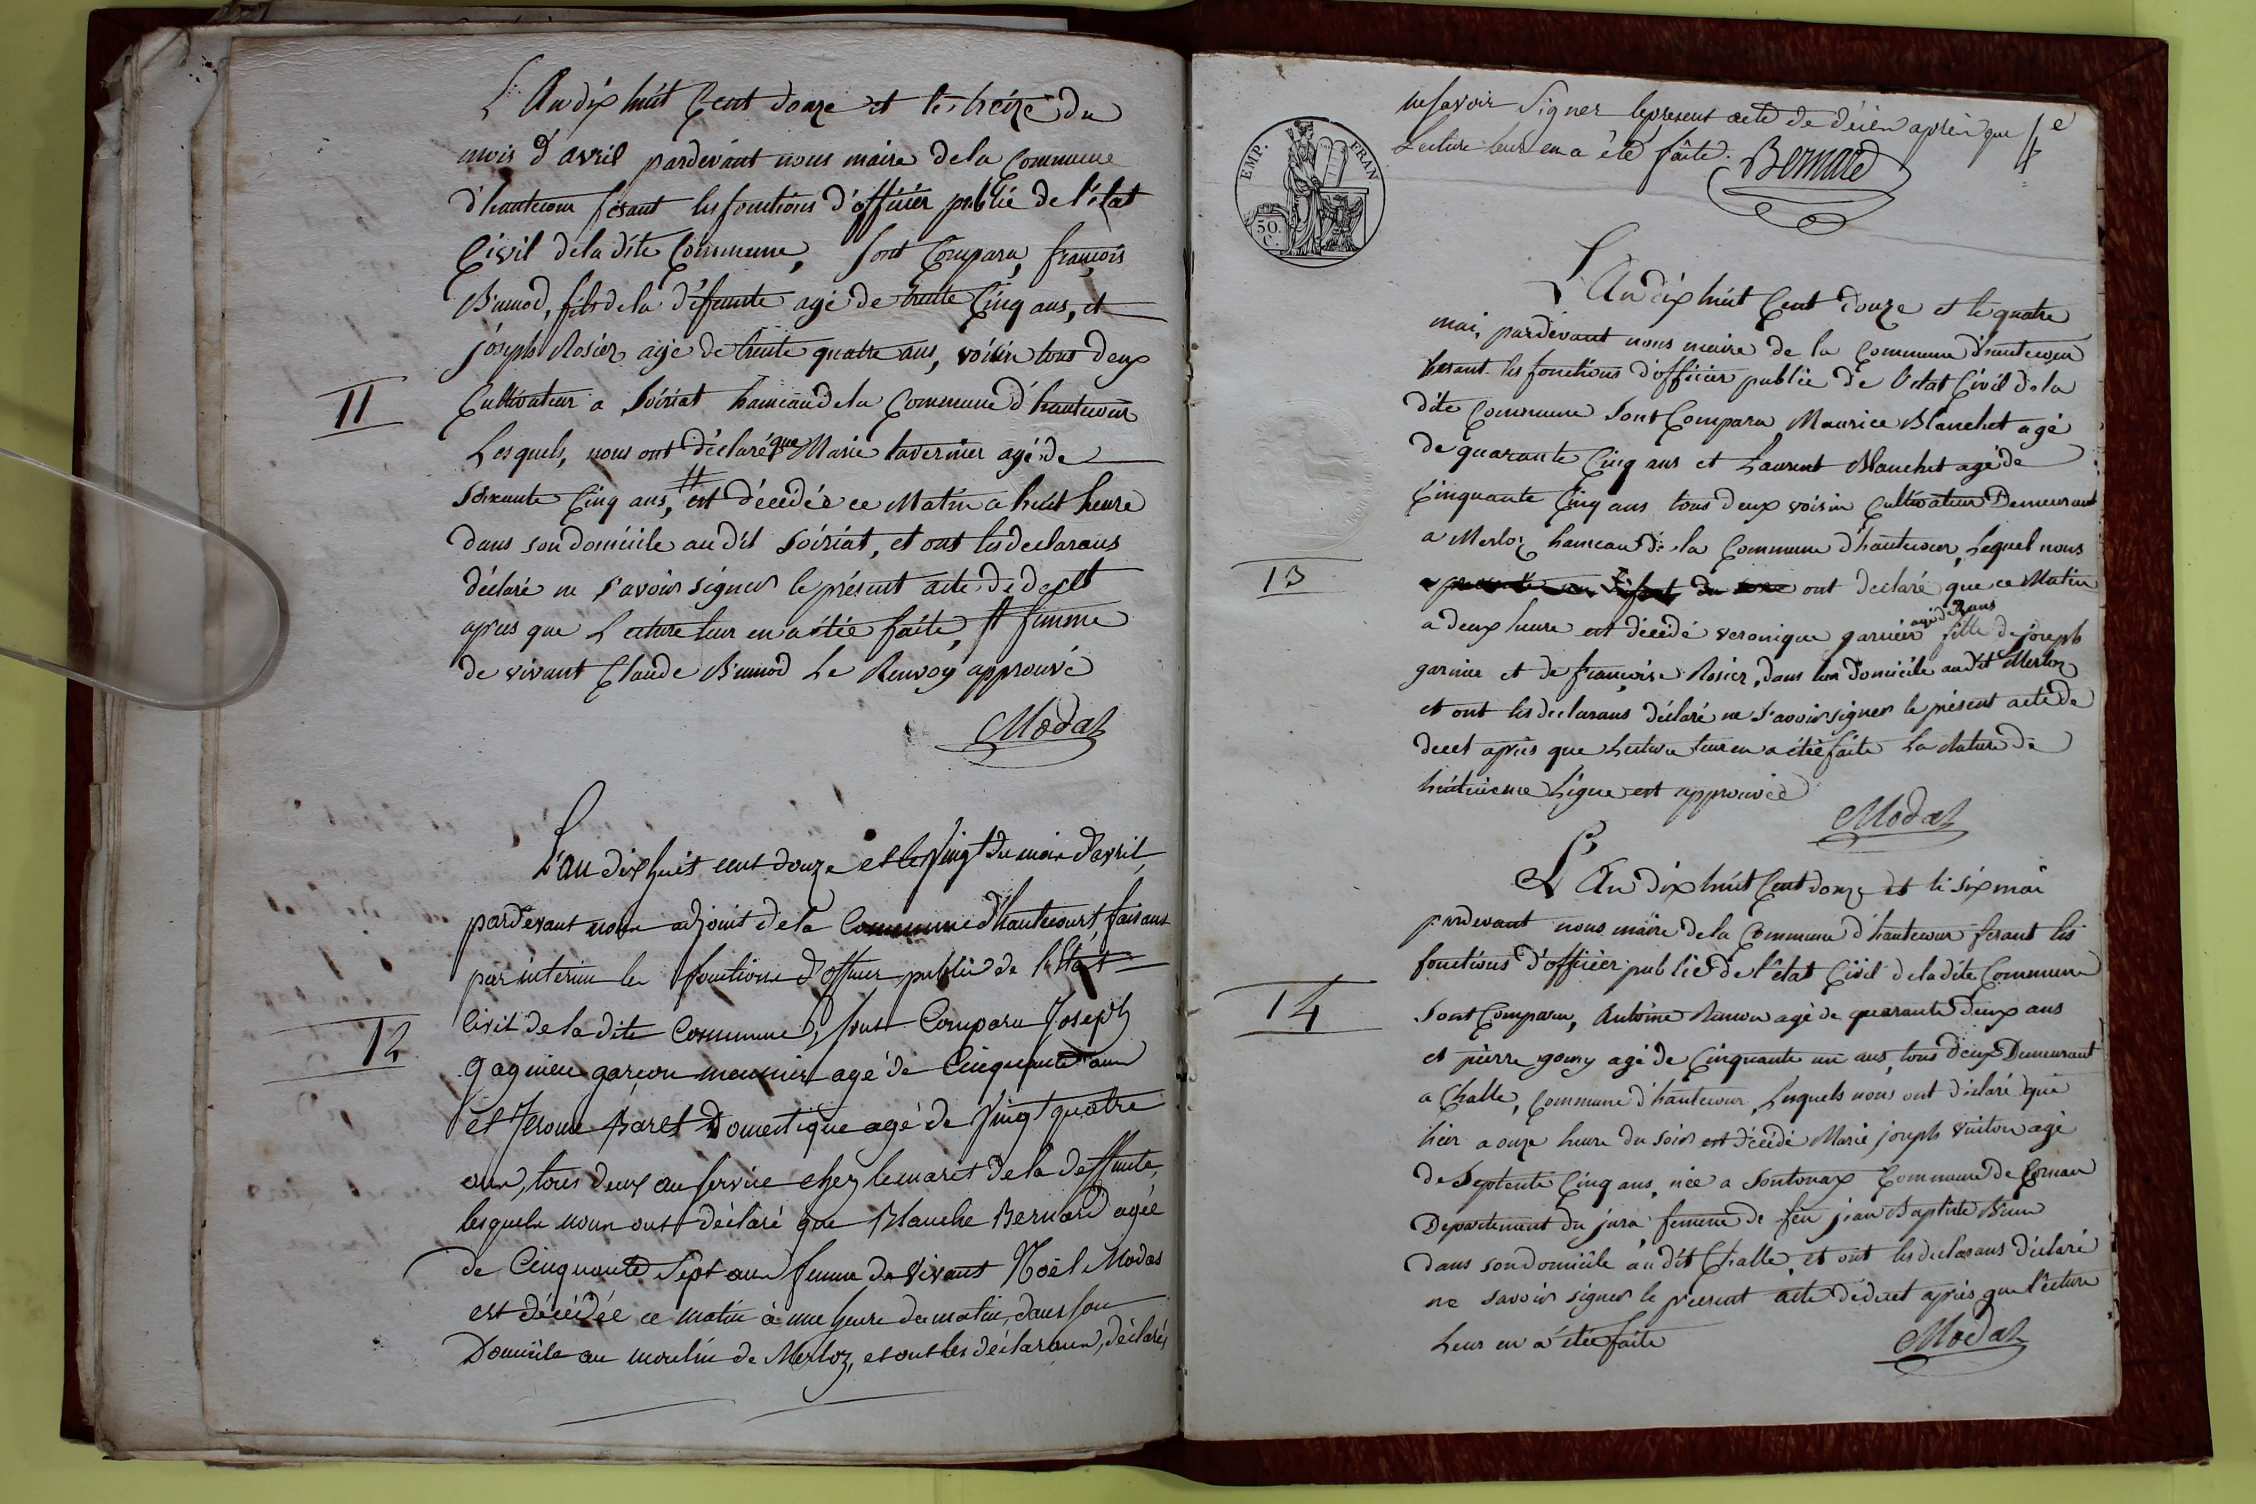 L'An dix huit Cent douze et le treize du
mois d'avril pardevant nous maire de la Commune
d'hautecour fesant les fonctions d'officier public de l'état
Civil de la dite Commune, sont Comparu, françois
Bunod, fils de la défunte agé de trente Cinq ans, et
joseph Rosier agé de trente quatre ans, voisin tous deux
Cultivateur a Soiriat hameau de la Commune d'hautecour
Lesquels, nous ont déclaré que Marie tavernier agé de
soixante Cinq ans, # est décédée ce Matin a huit heure
dans son domicile au dit Soiriat, et ont les declarans
déclaré ne s'avoir signer le présent acte de decet
apres que Lecture leur en a étée faite, # femme
de vivant Claude Bunod Le Renvoy approuvé
Modas
11
L'an dix huit cent douze et le vingt du mois d'avril
pardevant nous adjoint de la Commune d'hautecourt, faisant
par interim les fonctions d'officier public de l'Etat
Civil de la dite Commune, sont Comparu Joseph
gagnieu garçon meunier agé de Cinquante ans
et Jerome Paret Domestique agé de Vingt quatre
ans, tous deux au service chez le marit de la deffunte,
lesquels nous ont déclaré que Blanche Bernard agée
de Cinquante Sept ans femme de vivant Noël Modas
est décédée ce matin à une heure du matin, dans son
Domicile au moulin de Merloz, et ont les déclarans, déclarés
12
EMP. FRAN
50. C.
ne savoir Signer le present acte de décès après que
Lecture leur en a été faite. Bernard
L'An dix huit Cent douze et le quatre
mai, pardevant nous maire de la Commune d'hautecour
fesant les fonctions d'officier public de l'état Civil de la
dite Commune sont Comparu Maurice Blanchet agé
de quarante Cinq ans et Laurent Blanchet agé de
Cinquante Cinq ans tous deux voisin Cultivateur Demeurant
a Merloz hameau de la Commune d'hautecour, Lequel nous
ont declaré que ce Matin
a deux heure est décédé veronique garnier agé d ans fille de joseph
garnier et de françoise Rosier, dans leur domicile au dit Merloz
et ont les declarans déclaré ne s'avoir signer le présent acte de
decet après que Lecture leur en a étée faite La Rature de
huitieme Ligne est approuvée
Modas
13
L'An dix huit Cent douze et le six mai
pardevant nous maire de la Commune d'hautecour fesant les
fonctions d'officier public de l'état Civil de la dite Commune
sont Comparu, Antoine agé de quarante deux ans
et pierre goury agé de Cinquante un ans, tous deux Demeurant
a Challe, Commune d'hautecour, Lesquels nous ont déclaré que
hier a onze heure du soir est décédé Marie joseph vuiton agé
de Septente Cinq ans, née a Sontonax Commune de Cornau
Departement du jura, femme de feu jean Baptiste Brun
dans son domicile au dit Challe, et ont les declarans déclaré
ne savoir signer le present acte de decet après que lecture
Leur en a étée faite
Modas
14